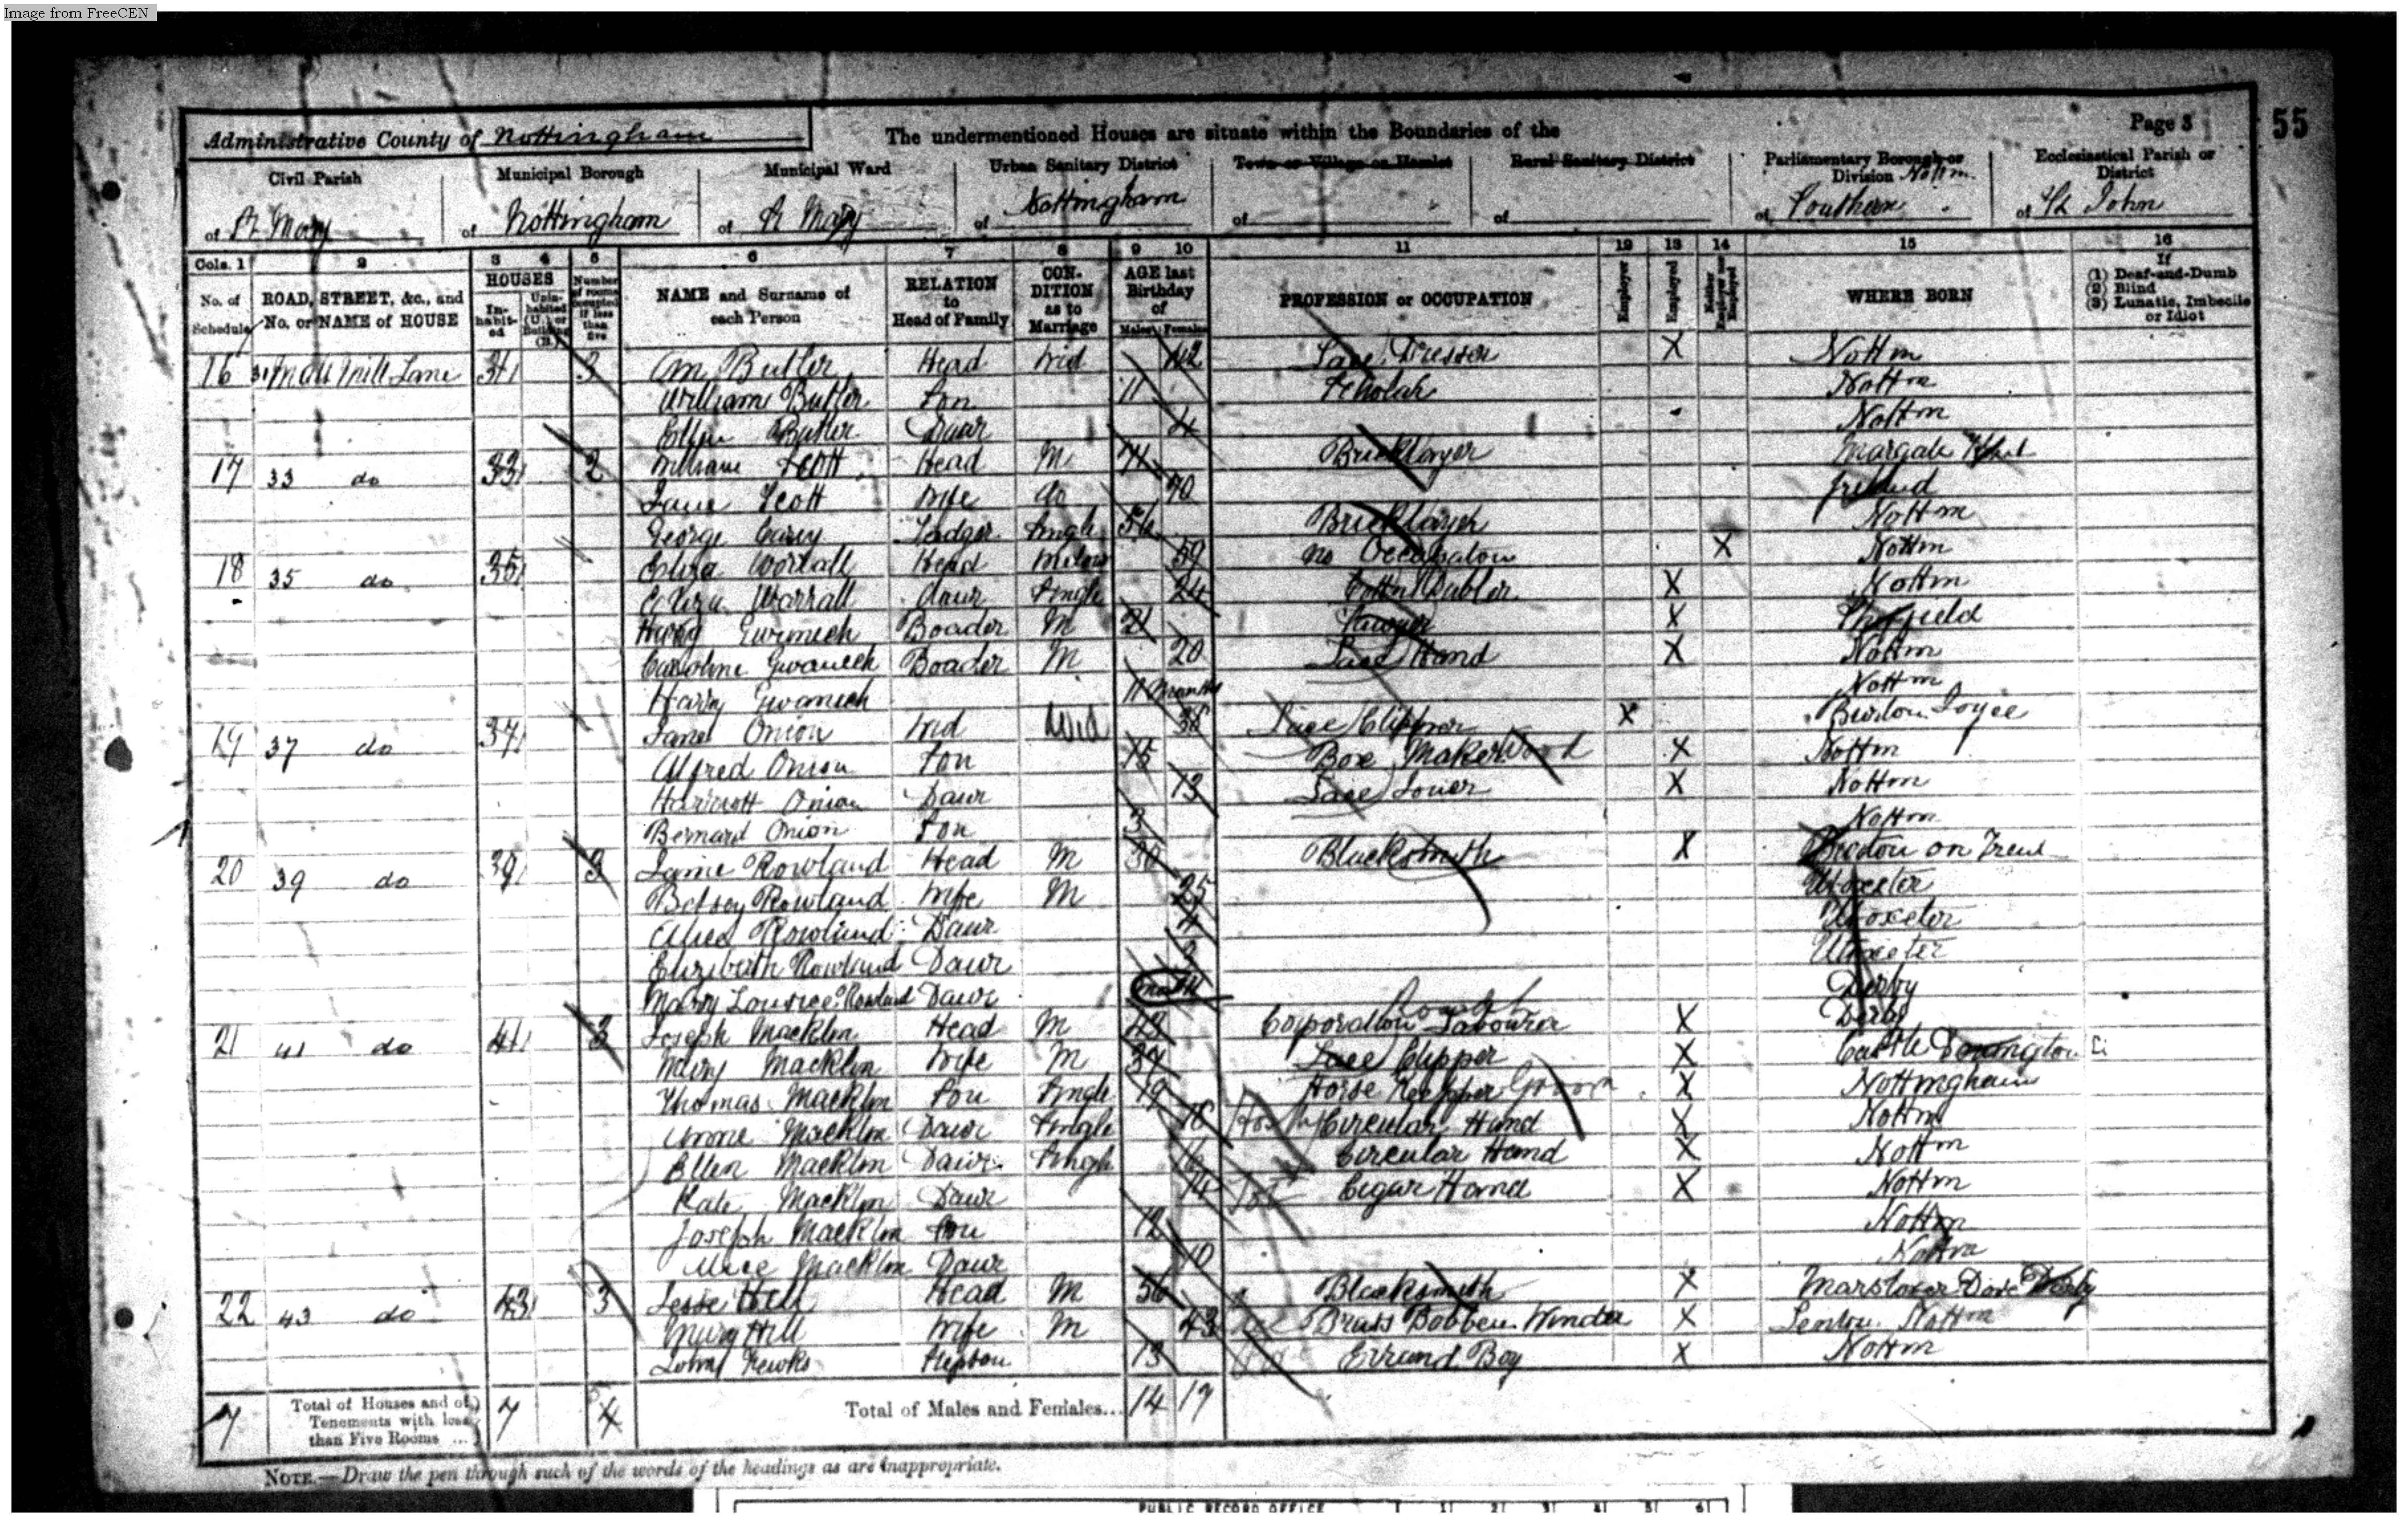 Image from FreeCEN
Page 3
55
Administrative County of Nottingham
The undermentioned Houses are situate within the Boundaries of the
Civil Parish
Municipal Borough
Municipal Ward
Urban Sanitary District
Town or Village or Hamlet
Rural Sanitary District
Parliamentary Borough or Division Nottm.
Ecclesiastical Parish or District
of St Mary
of Nottingham
of St Mary
of Nottingham
of
of
of Southern
of St John
Cols. 1 2 3 4 5 6 7 8 9 10 11 12 13 14 15 16
No. of Schedule
ROAD, STREET, &c., and No. or NAME of HOUSE
HOUSES
In-habit-ed
Unin-habited (U.) or Building (B.)
Number of rooms occupied if less than five
NAME and Surname of each Person
RELATION to Head of Family
CON-DITION as to Marriage
AGE last Birthday of
Males Females
PROFESSION or OCCUPATION
Employer
Employed
Neither Employer nor Employed
WHERE BORN
If
(1) Deaf-and-Dumb
(2) Blind
(3) Lunatic, Imbecile or Idiot
16 31 Mill Lane 31 3 Butler Head Wid 42 Lace Dresser X Nottm
William Butler Son 11 Scholar Nottm
Ellen Butler Daur 4 Nottm
17 33 do 33 2 William Scott Head M 71 Bricklayer Margate Kent
Jane Scott Wife do 70 Ireland
George Lodger Single 56 Bricklayer Nottm
18 35 do 35 Eliza Worrall Head Widow 59 no Occupation X Nottm
Eliza Worrall daur Single 24 Cotton Dubler X Nottm
Harry Boader M 21 X Sheffield
Caroline Boader M 20 Lace Hand X Nottm
Harry 11 Months Nottm
19 37 do 37 Jane Onion Wid Wid 38 Lace Clipper X Burton Joyce
Alfred Onion Son 15 Box Maker Wood X Nottm
Harriott Onion Daur 13 Lace X Nottm
Bernard Onion Son 3 Nottm
20 39 do 39 3 Rowland Head M 30 Blacksmith X on Trent
Betsey Rowland Wife M 25 Utoxeter
Rowland Daur 4 Utoxeter
Elizebeth Rowland Daur 2 Utoxeter
Mary Rowland Daur Derby
21 41 do 41 3 Joseph Macklin Head M 43 Corporation Road Labourer X Derby
Mary Macklin Wife M 37 Lace Clipper X Castle Donington
Thomas Macklin Son Single 19 Horse Keepper Groom X Nottingham
Macklin Daur Single 18 Circular Hand X Nottm
Ellen Macklin Daur Single 16 Circular Hand X Nottm
Kate Macklin Daur 14 Cigar Hand X Nottm
Joseph Macklin Son 12 Nottm
Alice Macklin Daur 10 Nottm
22 43 do 43 3 Jesse Hill Head M 56 Blacksmith X
Mary Hill Wife M 43 Brass Bobben Winder X Lenton Nottm
John Stepson 13 Errand Boy X Nottm
7 Total of Houses and of Tenements with less than Five Rooms ... 7 4 Total of Males and Females... 14 17
NOTE.—Draw the pen through such of the words of the headings as are inappropriate.
PUBLIC RECORD OFFICE 1 2 3 4 5 6